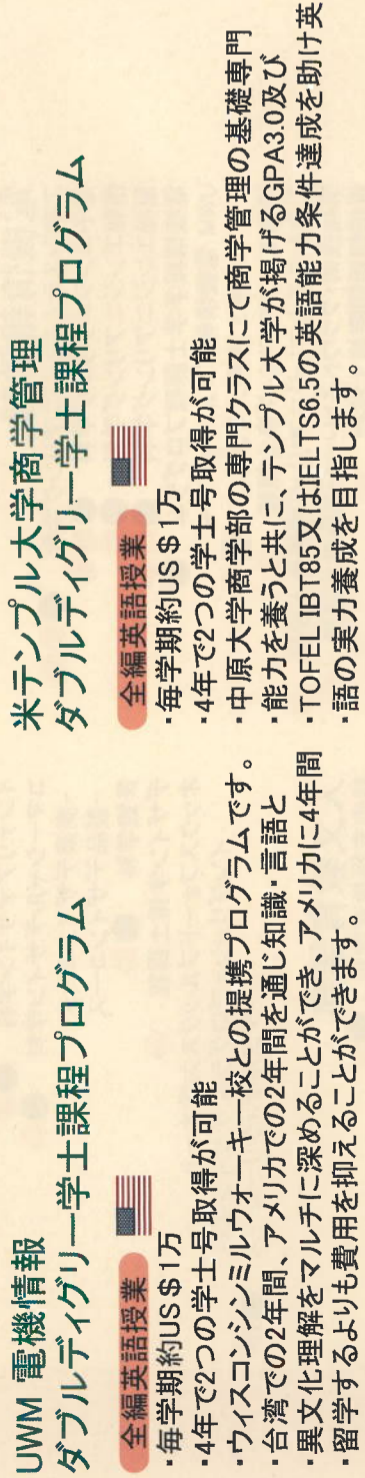 UWM 電機情報
ダブルディグリー学士課程プログラム
全編英語授業
・毎学期約US＄1万
・4年で2つの学士号取得が可能
・ウィスコンシンミルウォーキー校との提携プログラムです。
・台湾での2年間、アメリカでの2年間を通じ知識・言語と
・異文化理解をマルチに深めることができ、アメリカに4年間
・留学するよりも費用を抑えることができます。
米テンプル大学商学管理
ダブルディグリー学士課程プログラム
全編英語授業
・毎学期約US＄1万
・4年で2つの学士号取得が可能
・中原大学商学部の専門クラスにて商学管理の基礎専門
・能力を養うと共に、テンプル大学が掲げるGPA3.0及び
・TOFEL IBT85又はIELTS6.5の英語能力条件達成を助け英
・語の実力養成を目指します。